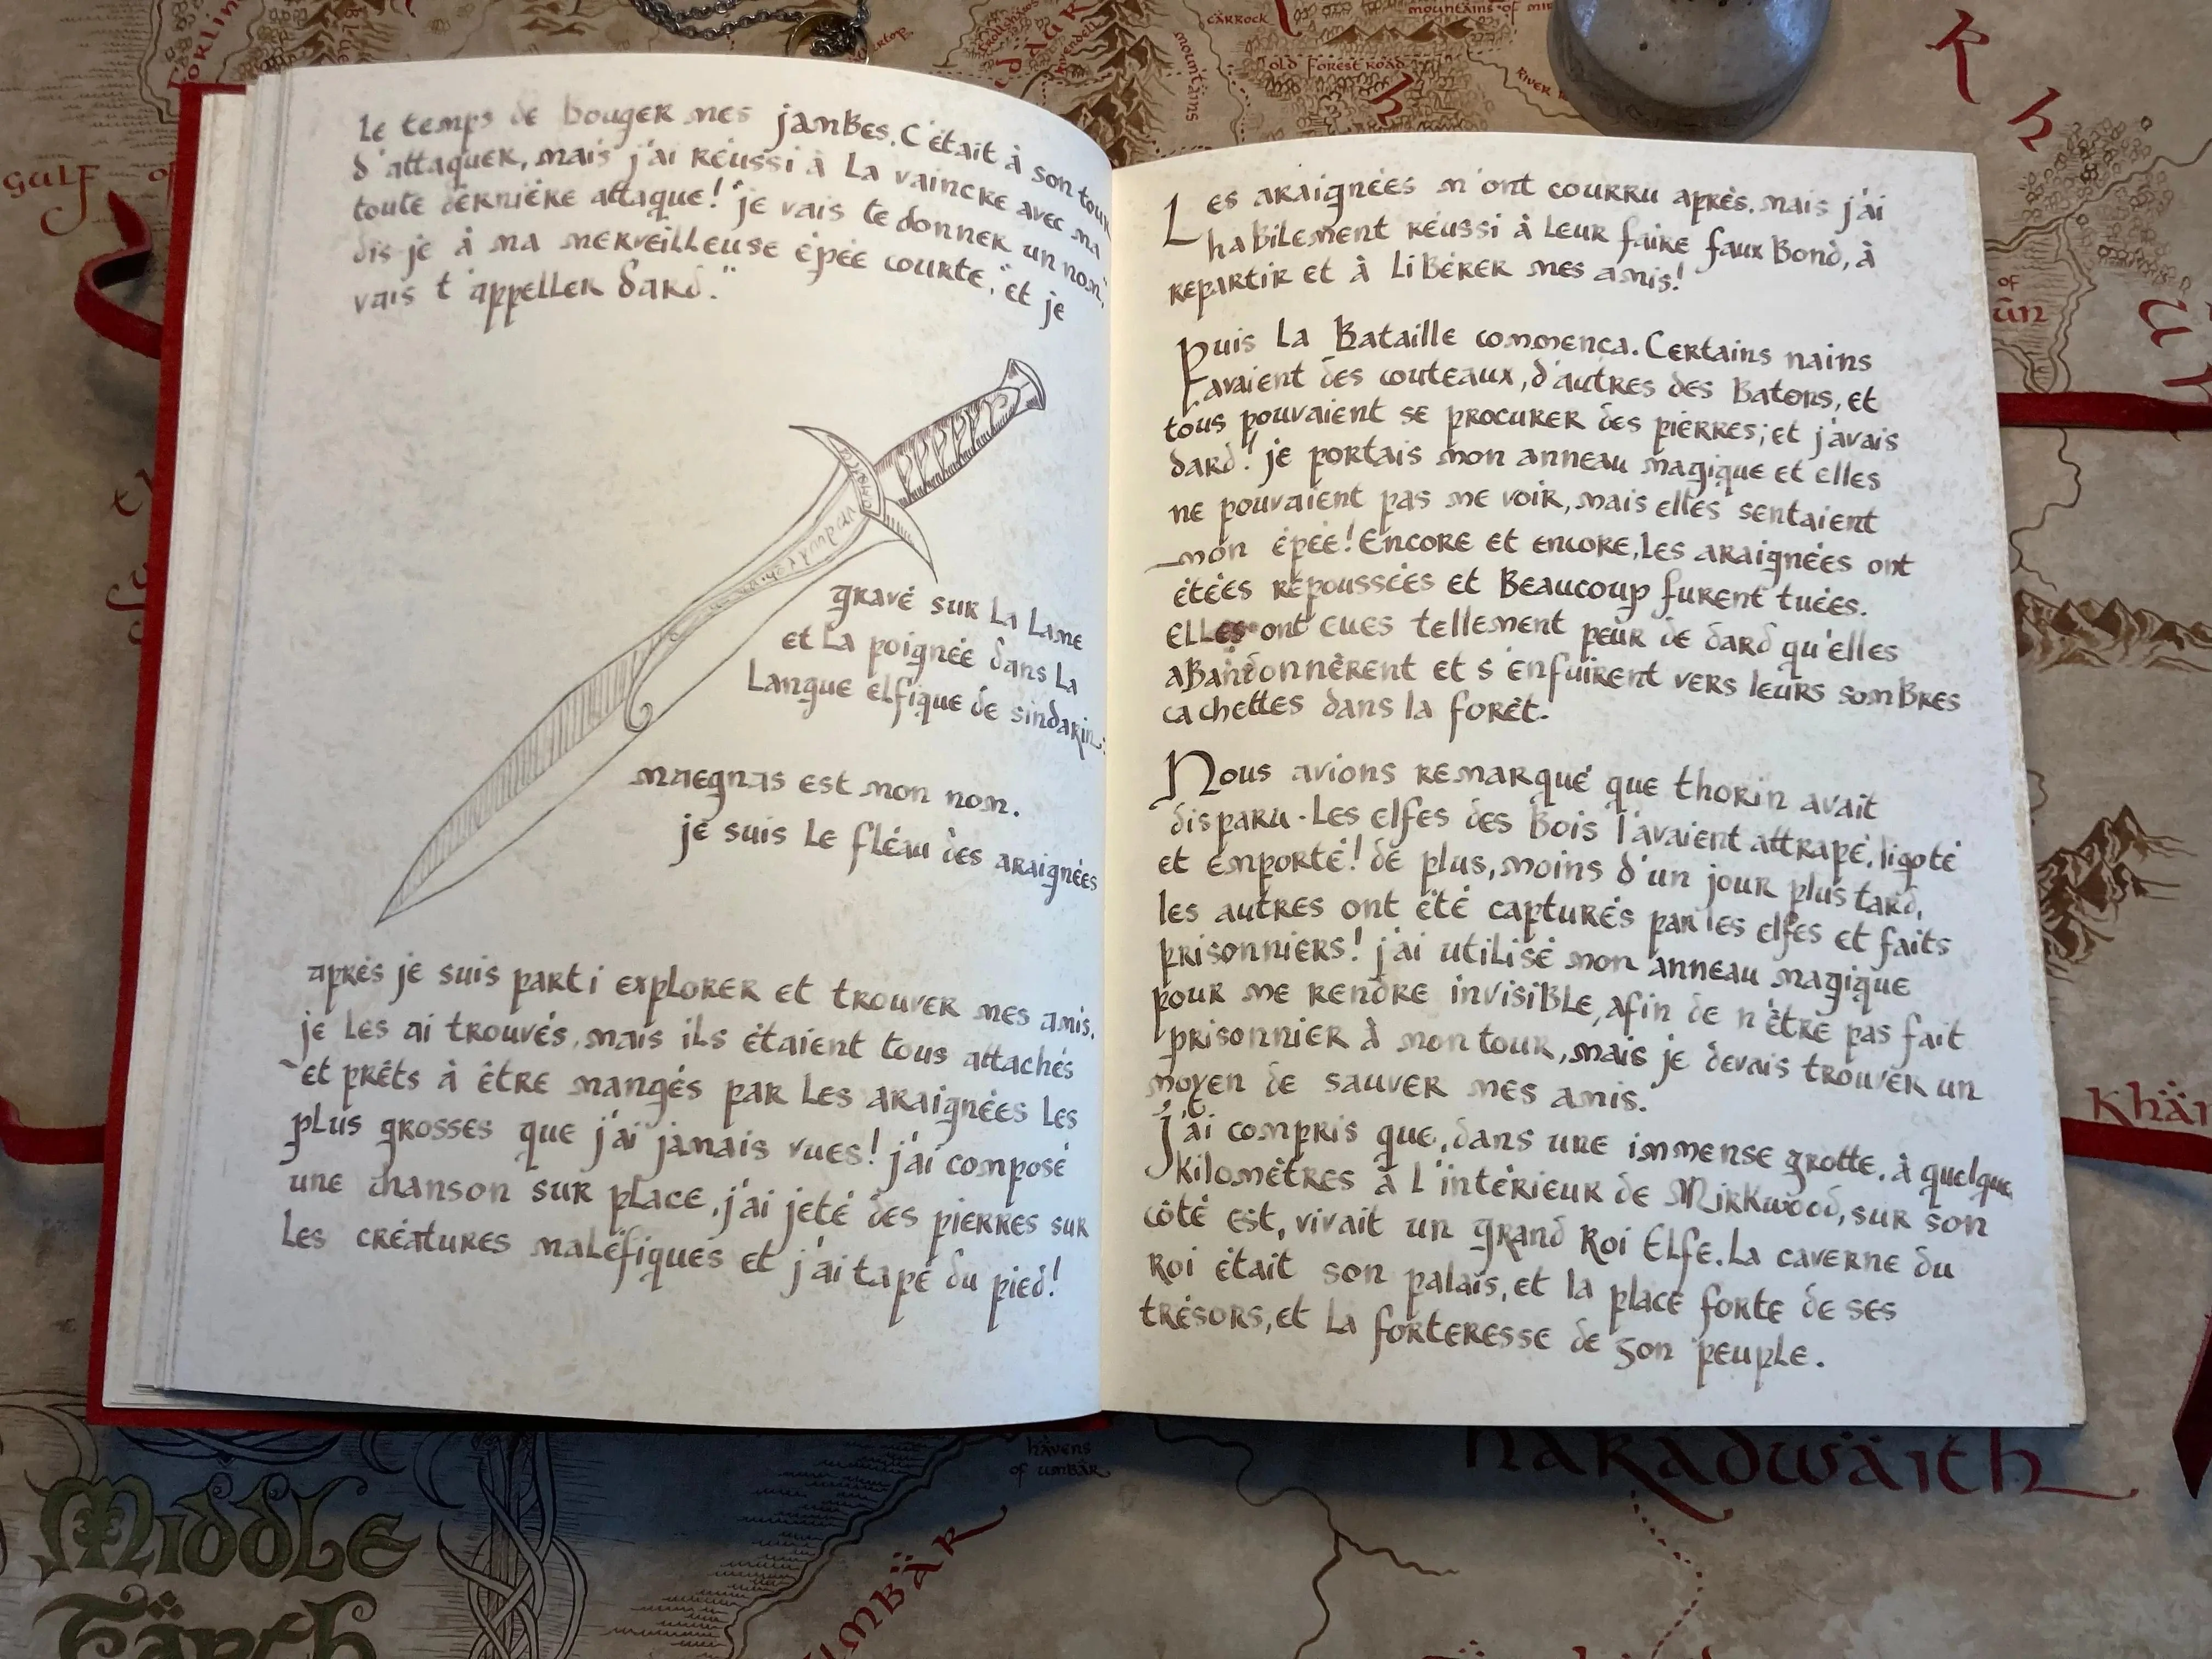 le temps de bouger mes jambes. C'était à son tour
d'attaquer, mais j'ai réussi à la vaincre avec ma
toute dernière attaque! "je vais te donner un nom,"
dis-je à ma merveilleuse épée courte, "et je
vais t'appeller Dard."
gravé sur la lame
et la poignée dans la
langue elfique de sindarin:
maegnas est mon nom.
je suis le fléau des araignées
après je suis parti explorer et trouver mes amis.
je les ai trouvés, mais ils étaient tous attachés
et prêts à être mangés par les araignées les
plus grosses que j'ai jamais vues! j'ai composé
une chanson sur place, j'ai jeté des pierres sur
les créatures maléfiques et j'ai tapé du pied!
Les araignées m'ont courru après, mais j'ai
habilement réussi à leur faire faux bond, à
repartir et à libérer mes amis!
Puis la Bataille commença. Certains nains
avaient des couteaux, d'autres des Batons, et
tous pouvaient se procurer des pierres; et j'avais
dard! je portais mon anneau magique et elles
ne pouvaient pas me voir, mais elles sentaient
mon épée! Encore et encore, les araignées ont
étées repoussées et Beaucoup furent tuées.
Elles ont eues tellement peur de dard qu'elles
abandonnèrent et s'enfuirent vers leurs sombres
cachettes dans la forêt.
Nous avions remarqué que thorin avait
disparu. Les elfes des Bois l'avaient attrapé, ligoté
et emporté! de plus, moins d'un jour plus tard,
les autres ont été capturés par les elfes et faits
prisonniers! j'ai utilisé mon anneau magique
pour me rendre invisible, afin de n'être pas fait
prisonnier à mon tour, mais je devais trouver un
moyen de sauver mes amis.
J'ai compris que, dans une immense grotte, à quelque
kilomètres à l'intérieur de Mirkwood, sur son
côté est, vivait un grand Roi Elfe. La caverne du
Roi était son palais, et la place forte de ses
trésors, et la forteresse de son peuple.
GULF
CARROCK
mountains
OLD FOREST ROAD
RIVER
of
Khä
havens
of umbar
haradwaith
Middle
Earth
UMBAR